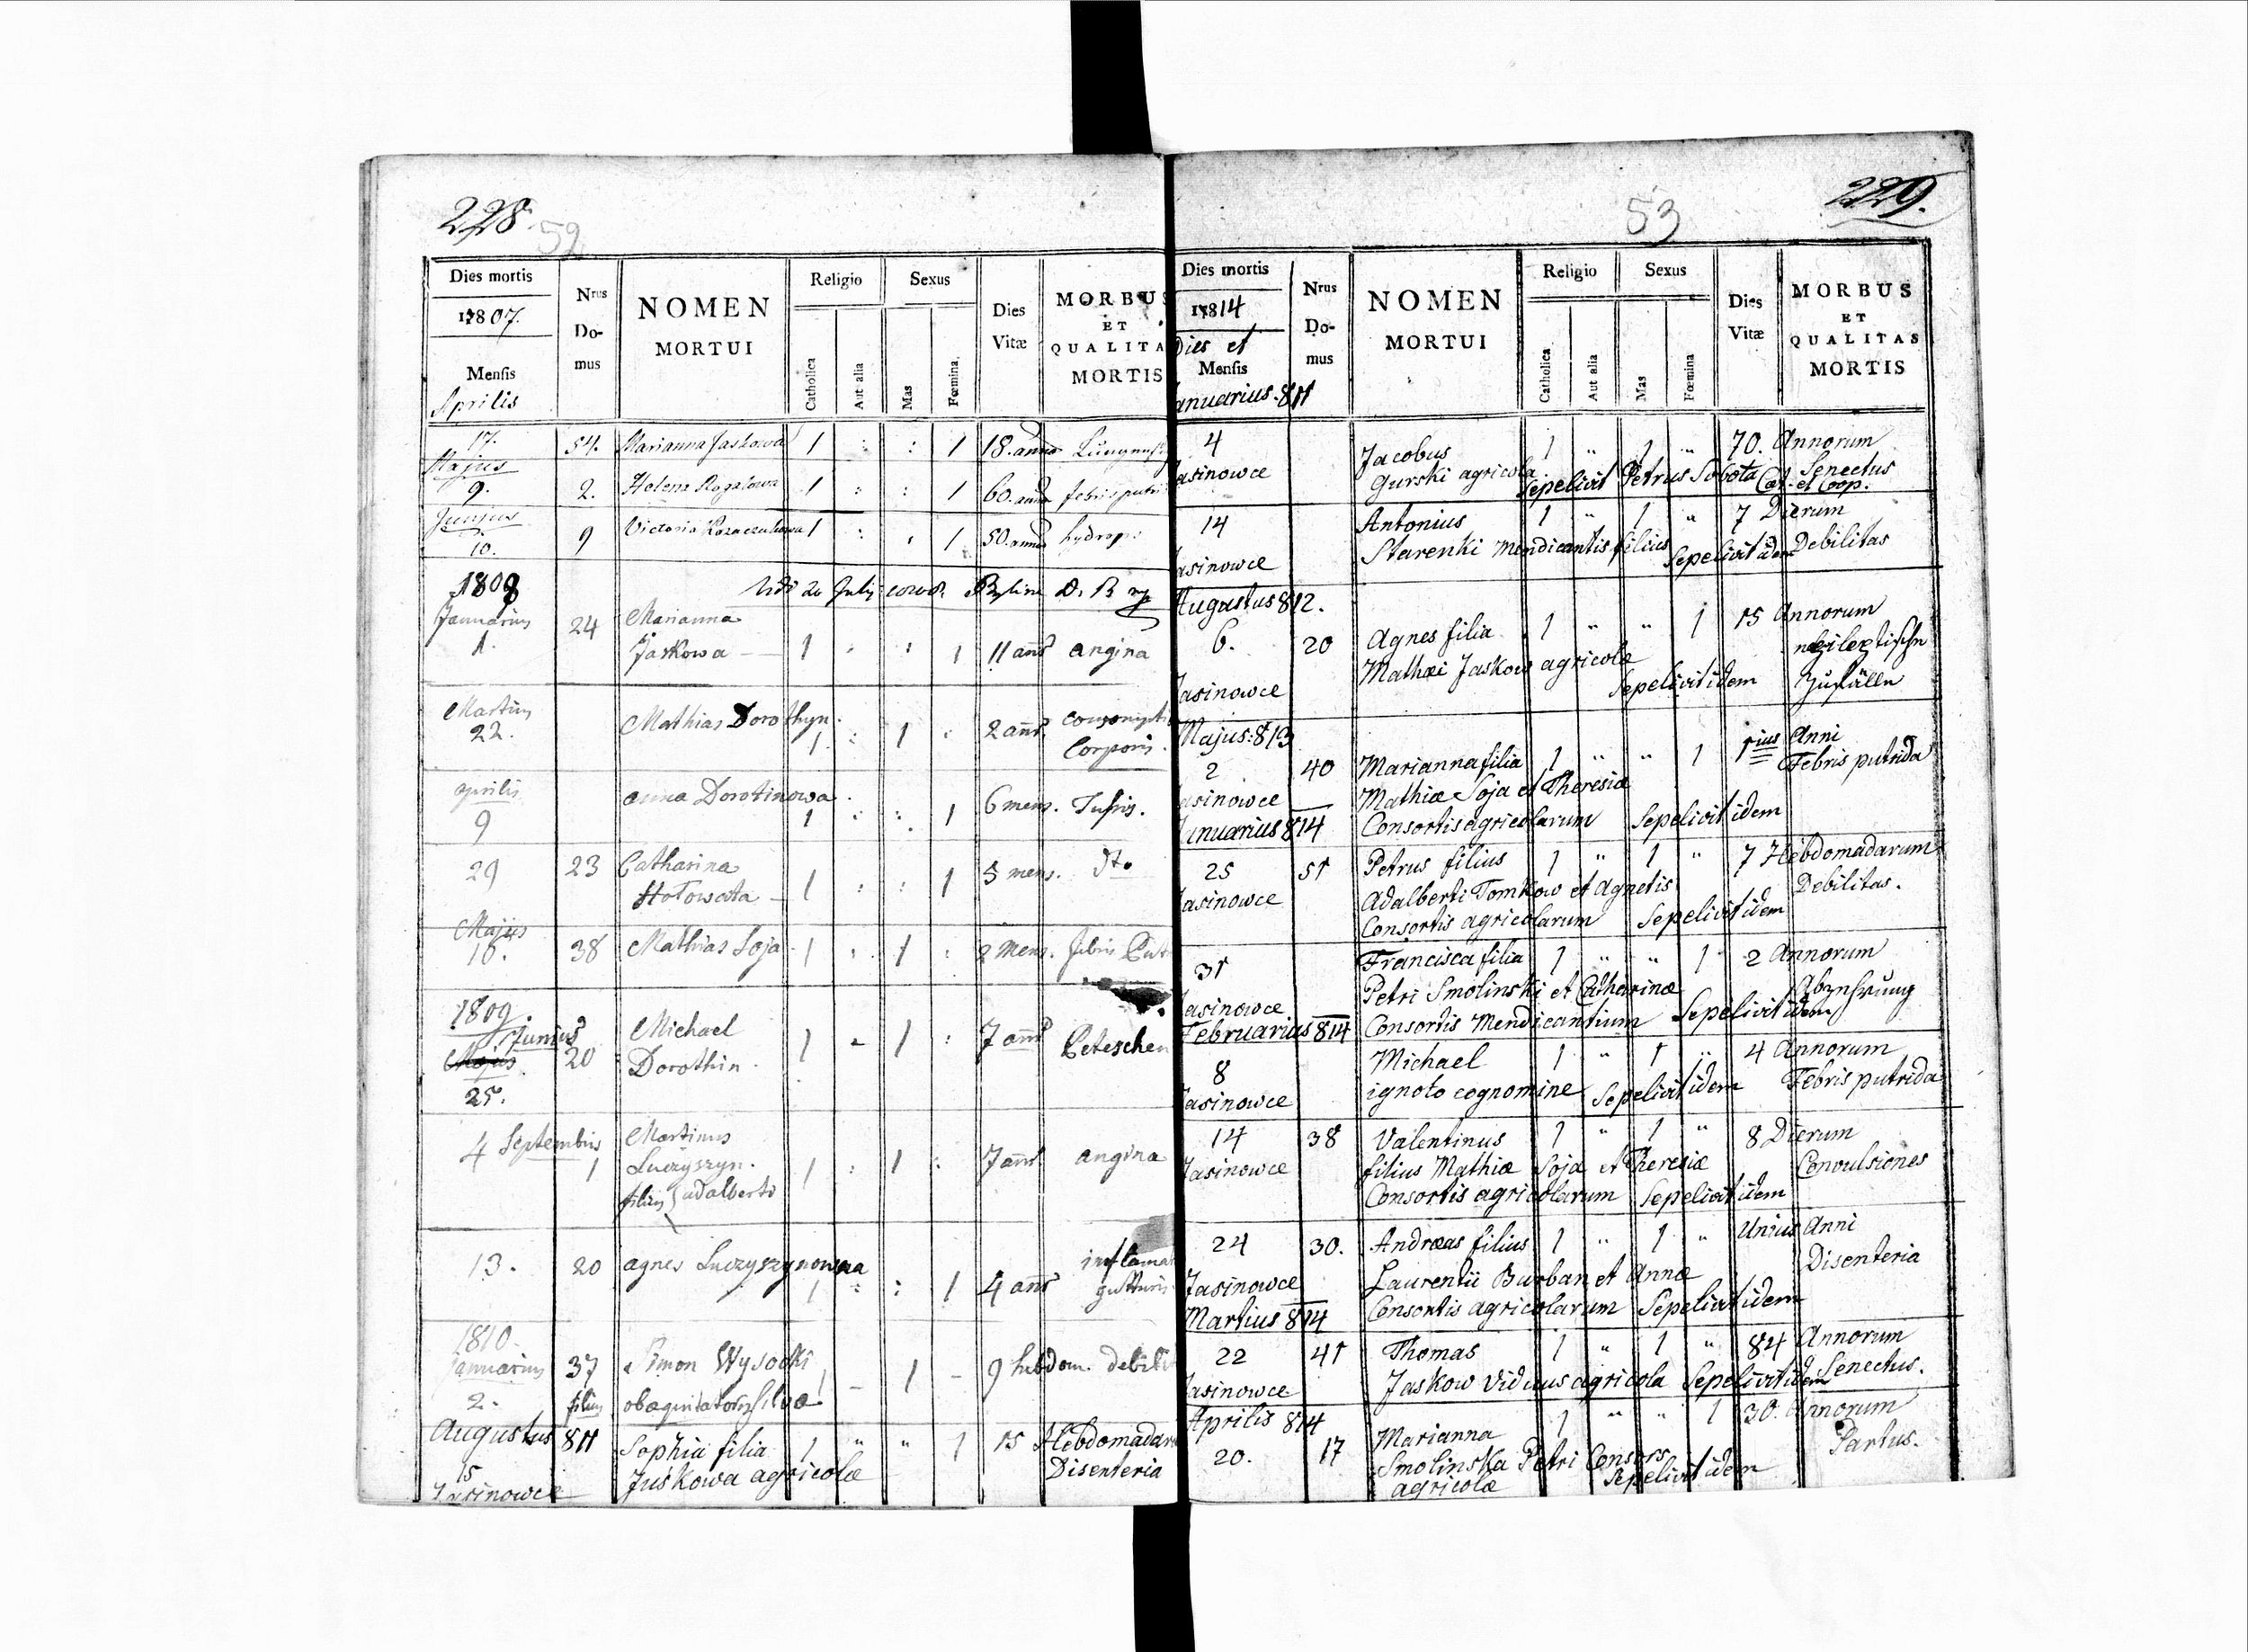 228.
52
Dies mortis
1807.
Mensis
Aprilis
Nrus
Do-
mus
NOMEN
MORTUI
Religio
Catholica
Aut alia
Sexus
Mas
Fœmina
Dies
Vitæ
MORBUS
ET
QUALITA
MORTIS
17. 54. Marianna Jaskowa 1 : : 1 18. anno
Majus
9. 2. Helena Rogalowa 1 : : 1 60. anno febris putri
Junius
10. 9 Victoria Kozaczukowa 1 : : 1 50. anno hydrops
1808
Januarius 24 Marianna
1. Jaskowa — 1 : : 1 11 anns angina
Martius
22. Mathias Dorothyn 1. : 1 : 2 anns. consumptio
Corporis.
Aprilis
9 anna Dorotinowa 1 : : 1 6 mens. Tussis.
29 23 Catharina
Hotowata — 1 : : 1 5 mens. dto
Majus
10. 38 Mathias Soja 1 : 1 : 2 Mens. febris Put
1809.
Junius
Majus 20 Michael
Dorothin 1 - 1 : 7 anns Peteschen
25.
4 Septembris 1 Martinus
Luczyszyn.
filius adalberti 1 : 1 : 7 anns angina
13. 20 agnes Luczyszynowna 1 : : 1 4 anns inflamat
gutturis
1810.
Januarius 37 Simon Wysocki
2. filius obaequitatoris Silvæ 1 — 1 — 9 hebdom. debilit
Augustus 811 Sophia filia 1 " " 1 15 Hebdomadar
15
Jasinowce Juskowa agricolæ Disenteria
229.
53
Dies mortis
1814
Dies et
Mensis
anuarius. 811
Nrus
Do-
mus
NOMEN
MORTUI
Religio
Catholica
Aut alia
Sexus
Mas
Fœmina
Dies
Vitæ
MORBUS
ET
QUALITAS
MORTIS
4 Jacobus 1 " 1 " 70. Annorum
asinowce Gurski agricola. Sepelivit Petrus Sobota Cat. et Coop. Senectus
14 Antonius 1 " 1 " 7 Dierum
asinowce Starenki Mendicantis filius Sepelivit idem Debilitas
Augustus 812.
6. 20 Agnes filia 1 " " 1 15 Annorum
Mathæi Jaskow agricolæ
Jasinowce Sepelivit idem Zufälle
Majus: 813
2 40 Marianna filia 1 " " 1 1ius Anni
asinowce Mathiæ Soja et Theresiæ Febris putrida
Consortis agricolarum Sepelivit idem
Januarius 814
25 51 Petrus filius 1 " 1 " 7 Hebdomadarum
Jasinowce Adalberti Tomkow et Agnetis Debilitas.
Consortis agricolarum Sepelivit idem
31 Francisca filia 1 " " 1 2 Annorum
Jasinowce Petri Smolinski et Catharinæ Abzehrung
Consortis Mendicantium Sepelivit idem
Februarius 814
8 Michael 1 " 1 " 4 Annorum
Jasinowce ignoto cognomine Sepelivit idem Febris putrida
14 38 Valentinus 1 " 1 " 8 Dierum
Jasinowce filius Mathiæ Soja et Theresiæ Convulsiones
Consortis agricolarum Sepelivit idem
24 30. Andreas filius 1 " 1 " Unius Anni
Jasinowce Laurentii Burban et Annæ Disenteria
Consortis agricolarum Sepelivit idem
Martius 814
22 41 Thomas 1 " 1 " 84 Annorum
Jasinowce Jaskow Viduus agricola Sepelivit idem Senectus.
Aprilis 814
20. 17 Marianna 1 " " 1 30. Annorum
Smolinska Petri Consors Partus.
agricolæ Sepelivit idem